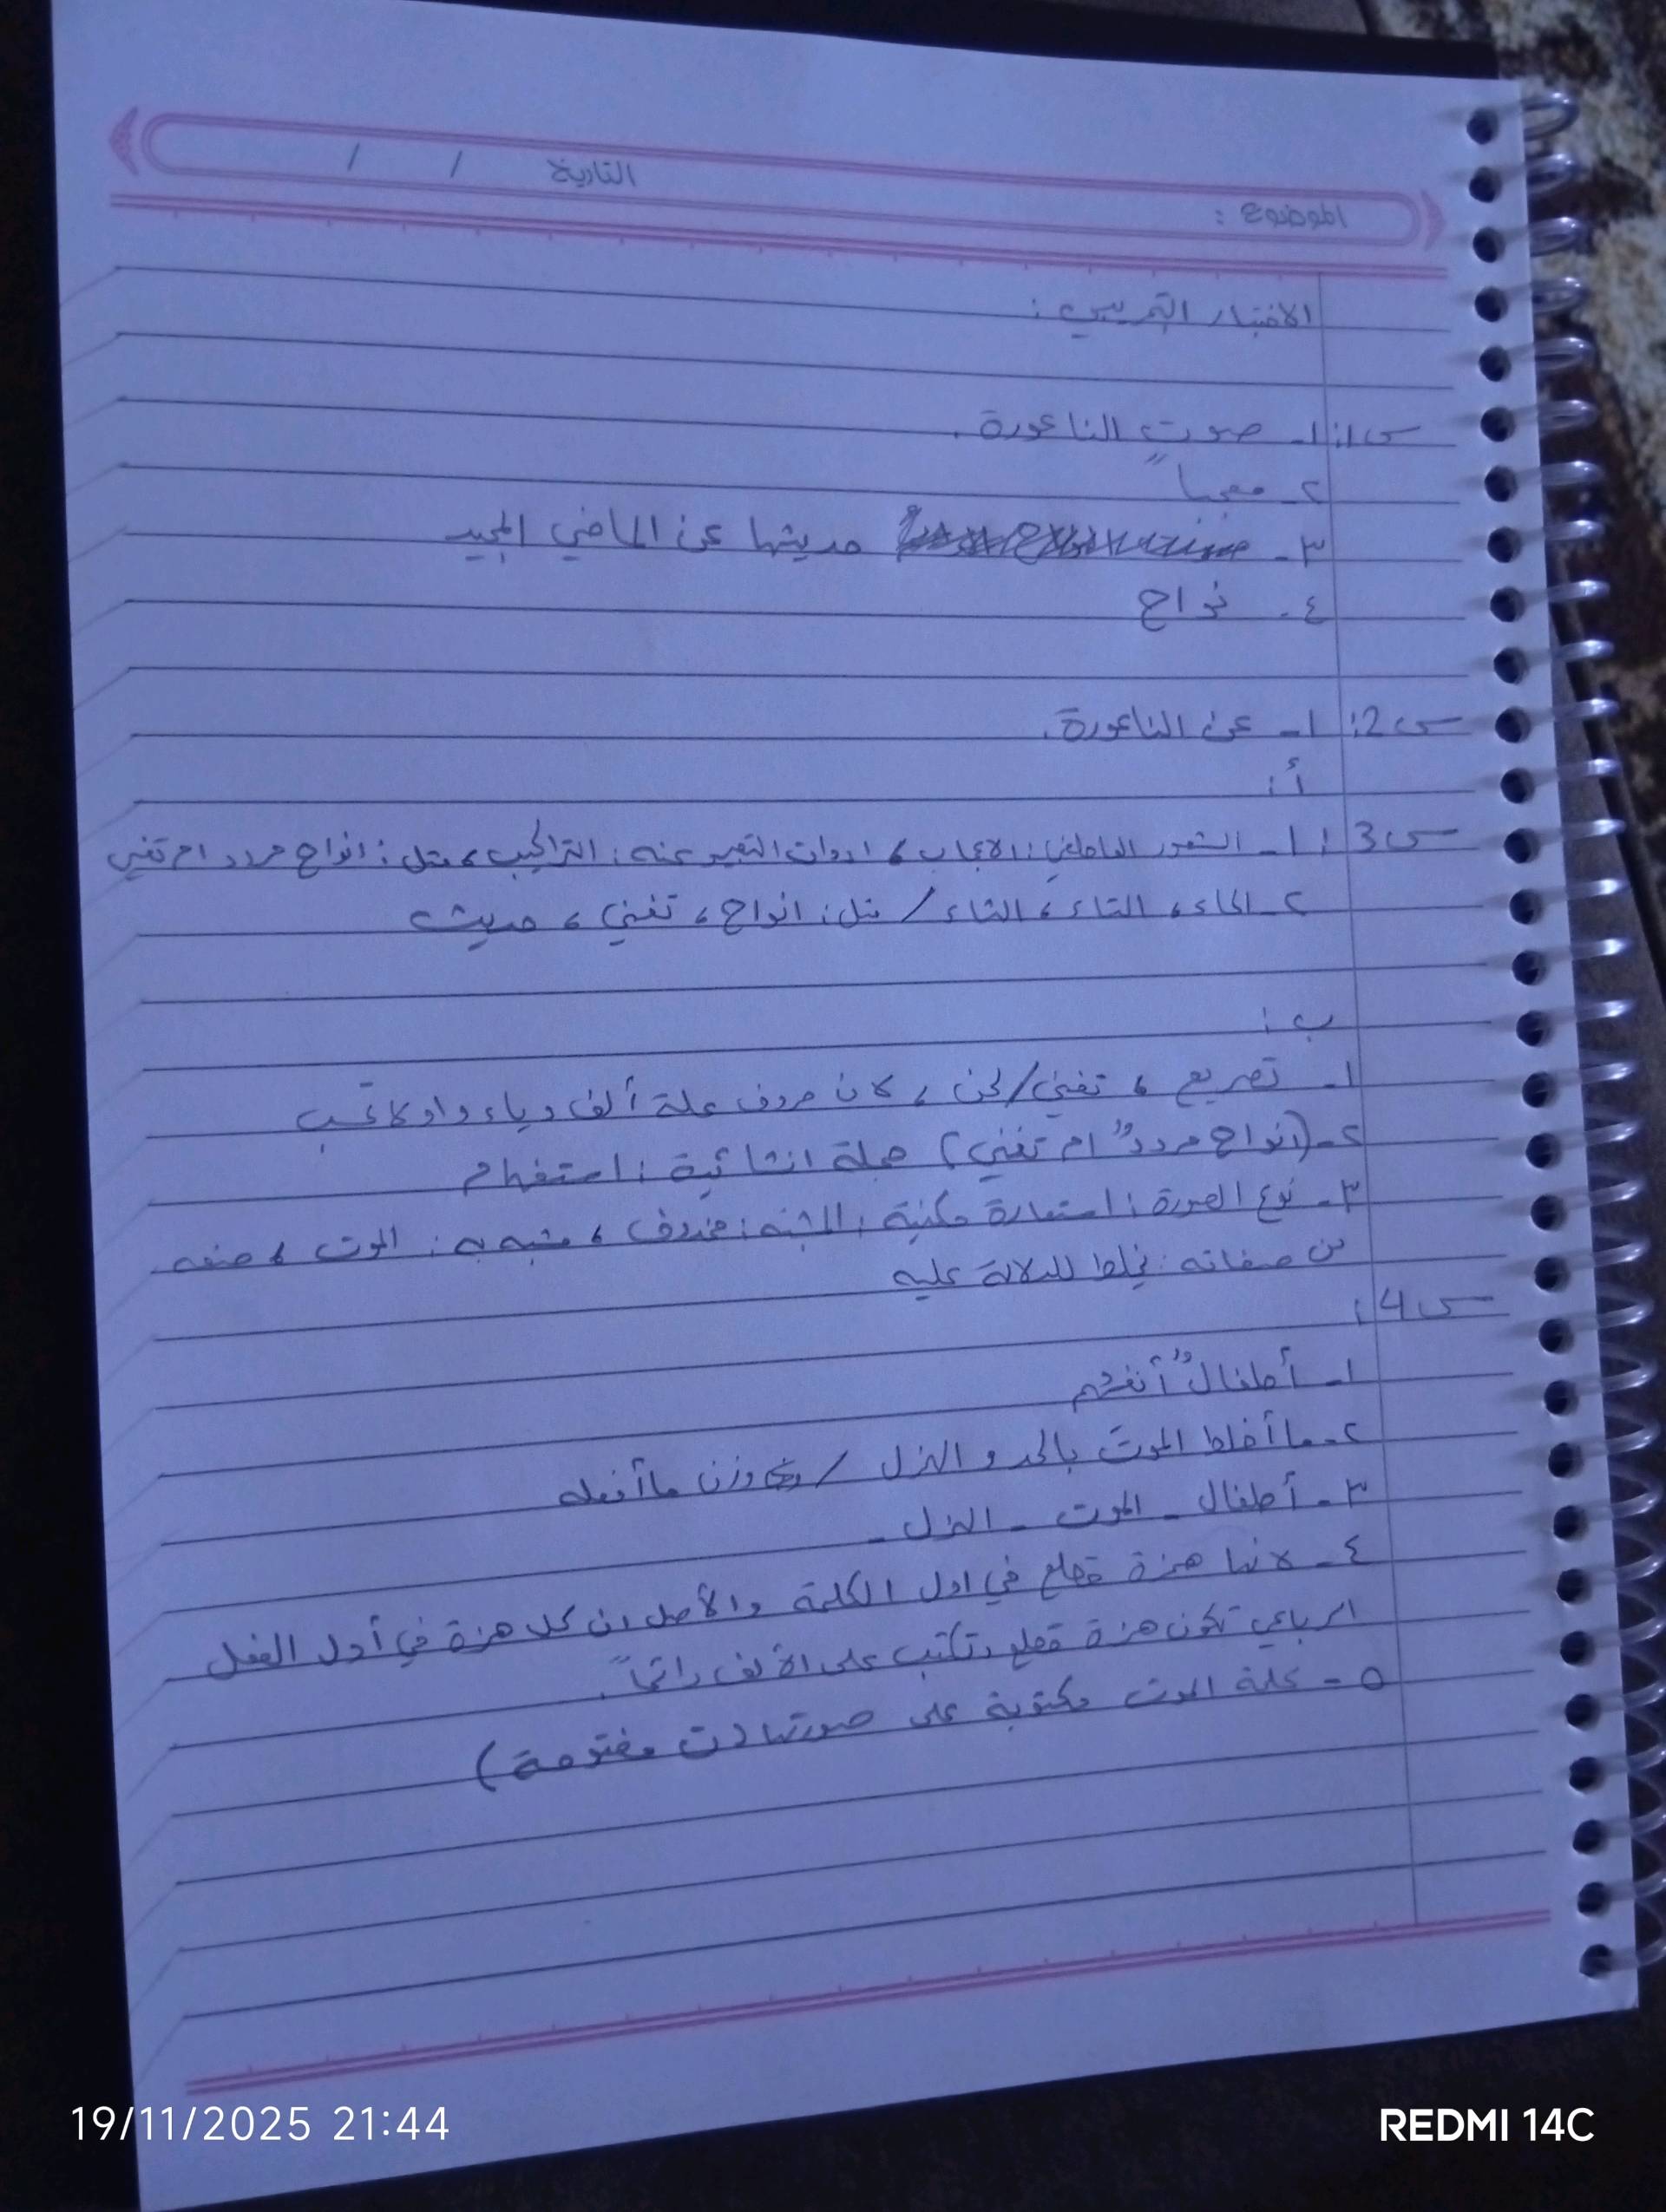 التاريخ / /
الموضوع :
الاختبار التجريبي :
س1: 1- صوت الناعورة .
٢- معجباً
٣- حديثها عن الماضي المجيد
٤- نواح
س2: 1- عن الناعورة .
أ :
س3: 1- الشعور العاطفي : الاعجاب ، ادوات التعبير عنه : التراكيب ، مثل : انواح مردد ام تغني
٢- الحاء ، التاء ، الثاء / مثل : انواح ، تغني ، حديث
ب :
1- تصريع ، تغني / لحن ، لان حروف علة ألف و ياء و او لا تحسب
٢- (انواح مرددٌ ام تغني) جملة انشائية : استفهام
٣- نوع الصورة : استعارة مكنية ، المشبه : محذوف ، مشبه به : الموت ، صفه
من صفاته : يخلط للدلالة عليه
س4 :
1- أطفالٌ أنفسهم
٢- ما أخلط الموتَ بالجد و الهزل / وزن ما أفعله
٣- أطفال - الموت - الهزل -
٤- لانها همزة قطع في اول الكلمة والأصل ان كل همزة في أول الفعل
الرباعي تكون همزة قطع وتكتب على الألف دائماً .
٥- كلمة الموت مكتوبة على صورتها (ت مفتوحة)
19/11/2025 21:44
REDMI 14C